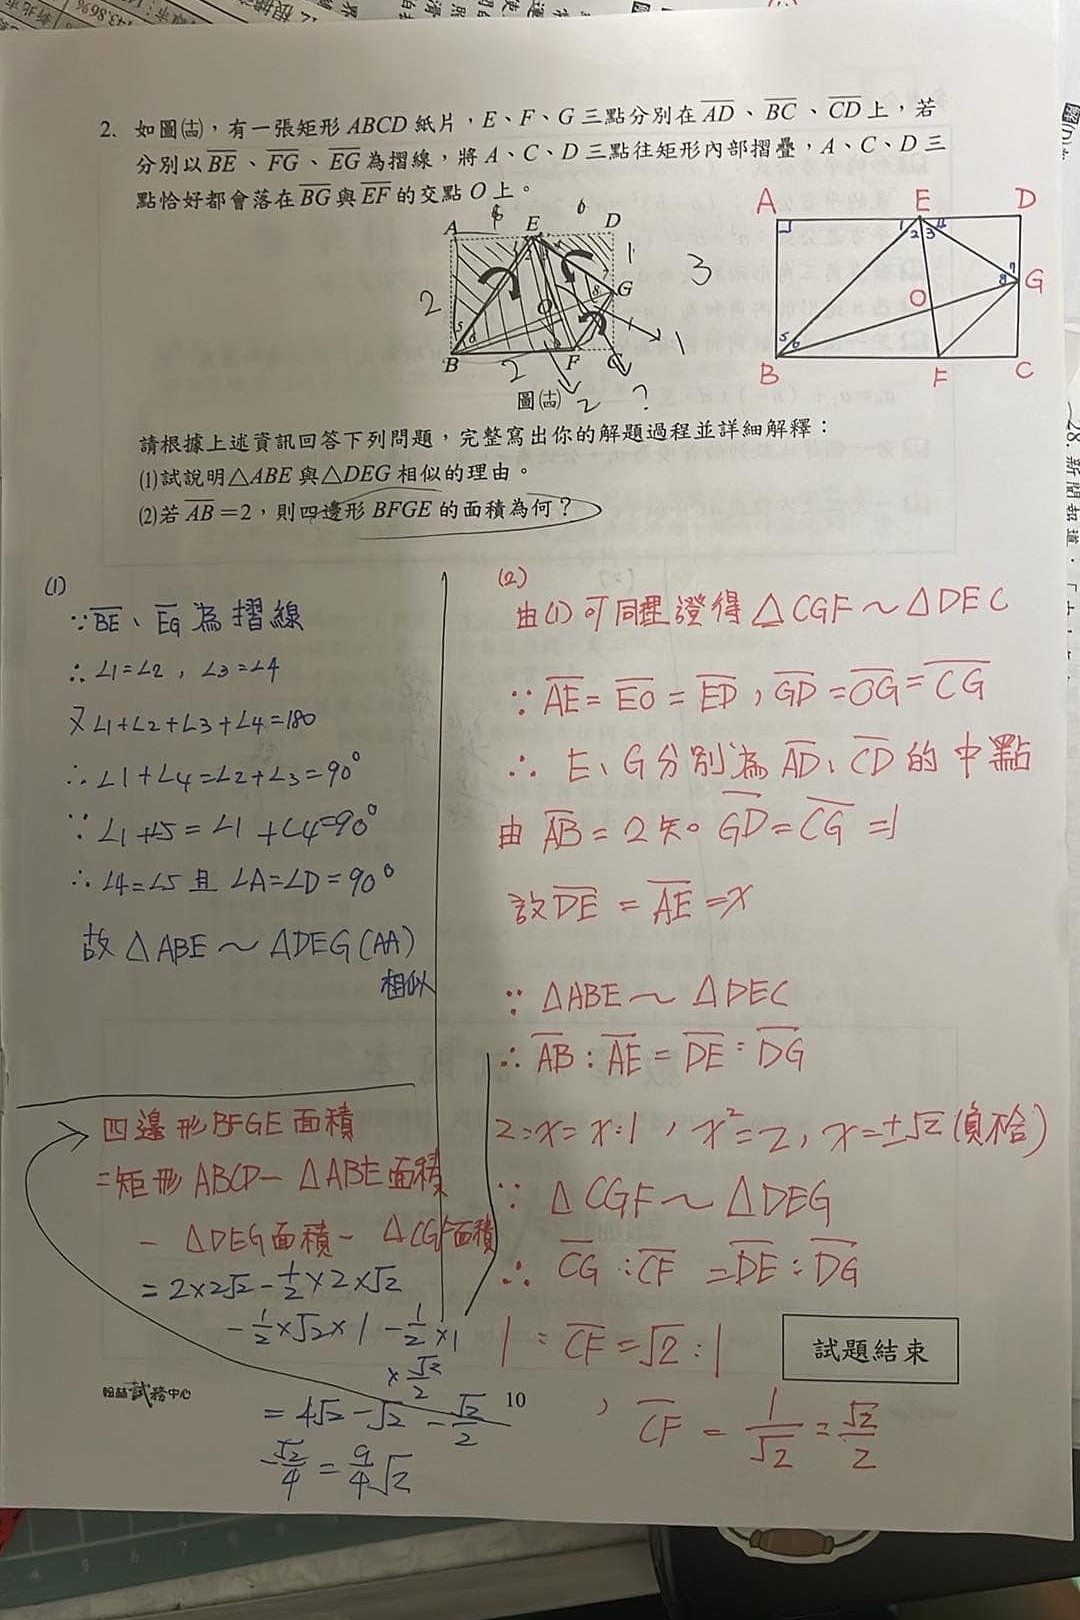 2. 如圖㈭，有一張矩形 ABCD 紙片，E、F、G 三點分別在 AD、BC、CD 上，若
分別以 BE、FG、EG 為摺線，將 A、C、D 三點往矩形內部摺疊，A、C、D 三
點恰好都會落在 BG 與 EF 的交點 O 上。
A E D
2 1 3
O G
B 2 F C 1
2 ?
A E D
1 2 3 4
7 8 G
O
5 6
B F C
請根據上述資訊回答下列問題，完整寫出你的解題過程並詳細解釋：
(1)試說明△ABE 與△DEG 相似的理由。
(2)若 AB=2，則四邊形 BFGE 的面積為何？
(1)
∵BE、EG為摺線
∴∠1=∠2，∠3=∠4
又∠1+∠2+∠3+∠4=180
∴∠1+∠4=∠2+∠3=90°
∵∠1+∠5=∠1+∠4=90°
∴∠4=∠5且∠A=∠D=90°
故△ABE～△DEG(AA)
相似
(2)
由(1)可同理證得△CGF～△DEC
∵AE=EO=ED，GD=OG=CG
∴E、G分別為AD、CD的中點
由AB=2知。GD=CG=1
故DE=AE=x
∵△ABE～△DEC
∴AB:AE=DE:DG
2:x=x:1，x²=2，x=±√2(負不合)
∵△CGF～△DEG
∴CG:CF=DE:DG
1:CF=√2:1
，CF=1/√2=√2/2
四邊形BFGE面積
=矩形ABCD-△ABE面積
-△DEG面積-△CGF面積
=2×2√2-1/2×2×√2
-1/2×√2×1-1/2×1
×√2/2
=4√2-√2-√2/2
-√2/4=9/4√2
試題結束
翰林試務中心
10